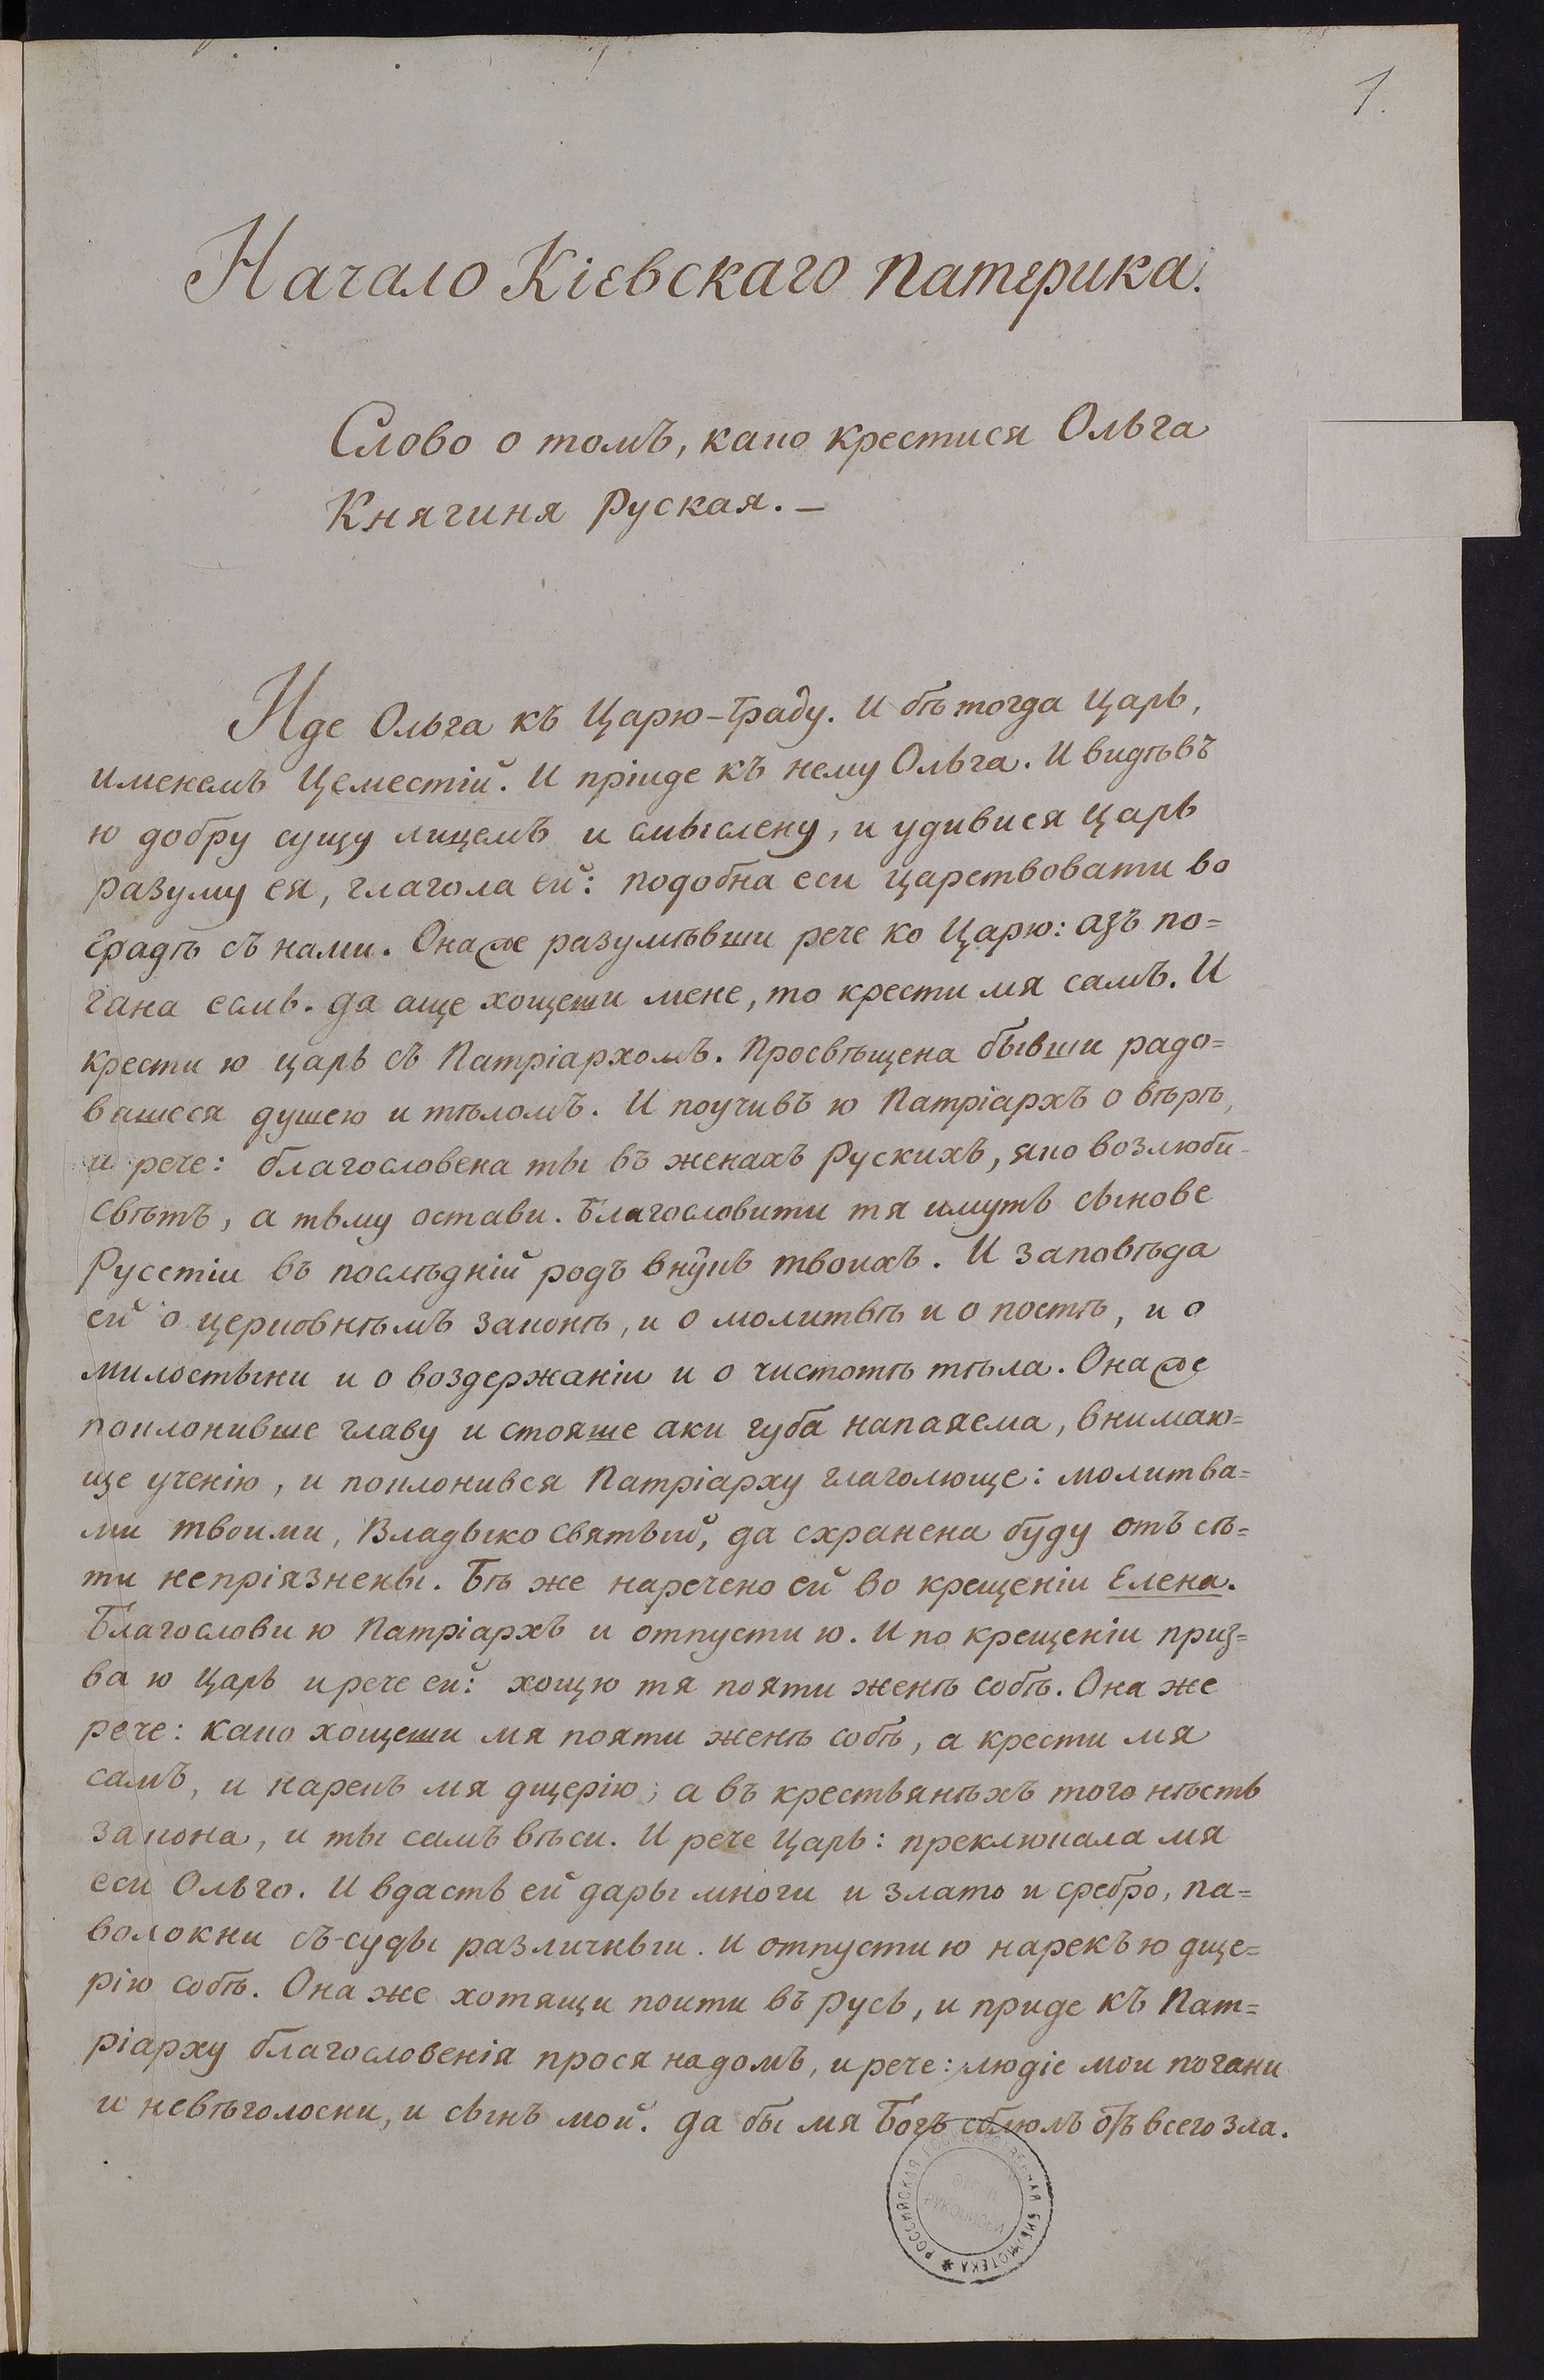 1.
Начало Кіевскаго Патерика.
Слово о томъ, како крестися Ольга
Княгиня Руская. –
Иде Ольга къ Царю-Граду. И бѣ тогда Царь,
именемъ Цеместій. И пріиде къ нему Ольга. И видѣвъ
ю добру сущу лицемъ и смыслену, и удивися Царь
разуму ея, глагола ей: подобна еси царствовати во
градѣ съ нами. Она же разумѣвши рече ко Царю: азъ по=
гана есмь. да аще хощеши мене, то крести мя самъ. И
крести ю царь съ Патріархомъ. Просвѣщена бывши радо=
вашеся душею и тѣломъ. И поучивъ ю Патріархъ о вѣрѣ,
и рече: благословена ты въ женахъ Рускихъ, яко возлюби-
свѣтъ, а тьму остави. Благословити тя имутъ сынове
Русстіи въ послѣдній родъ внукъ твоихъ. И заповѣда
ей о церковнѣмъ законѣ, и о молитвѣ и о постѣ, и о
милостыни и о воздержаніи и о чистотѣ тѣла. Она же
поклонивше главу и стояше аки губа напаяема, внимаю=
ще ученію, и поклонився Патріарху глаголюще: молитва=
ми твоими, Владыко Святый, да схранена буду отъ сѣ=
ти непріязнены. Бѣ же наречено ей во крещеніи Елена.
Благослови ю Патріархъ и отпусти ю. И по крещеніи приз=
ва ю Царь и рече ей: хощю тя пояти женѣ собѣ. Она же
рече: како хощеши мя пояти женѣ собѣ, а крести мя
самъ, и нарекъ мя дщерію; а въ крестьянѣхъ того нѣсть
закона, и ты самъ вѣси. И рече Царь: преклюкала мя
еси Ольго. И вдасть ей дары многи и злато и сребро, па=
волокни съ-суды различныи. и отпусти ю нарекъ ю дще=
рію собѣ. Она же хотящи поити въ Русь, и приде къ Пат=
ріарху благословенія прося на домъ, и рече: людіе мои погани
и невѣголоски, и сынъ мой. да бы мя Богъ сблюлъ отъ всего зла.
РОССИЙСКАЯ ГОСУДАРСТВЕННАЯ БИБЛИОТЕКА
ОТДЕЛ
РУКОПИСЕЙ